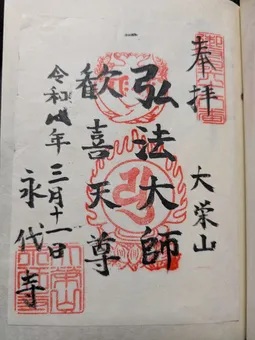 奉拝
大栄山
弘法大師
歓喜天尊
令和 年 三月十一日
永代寺